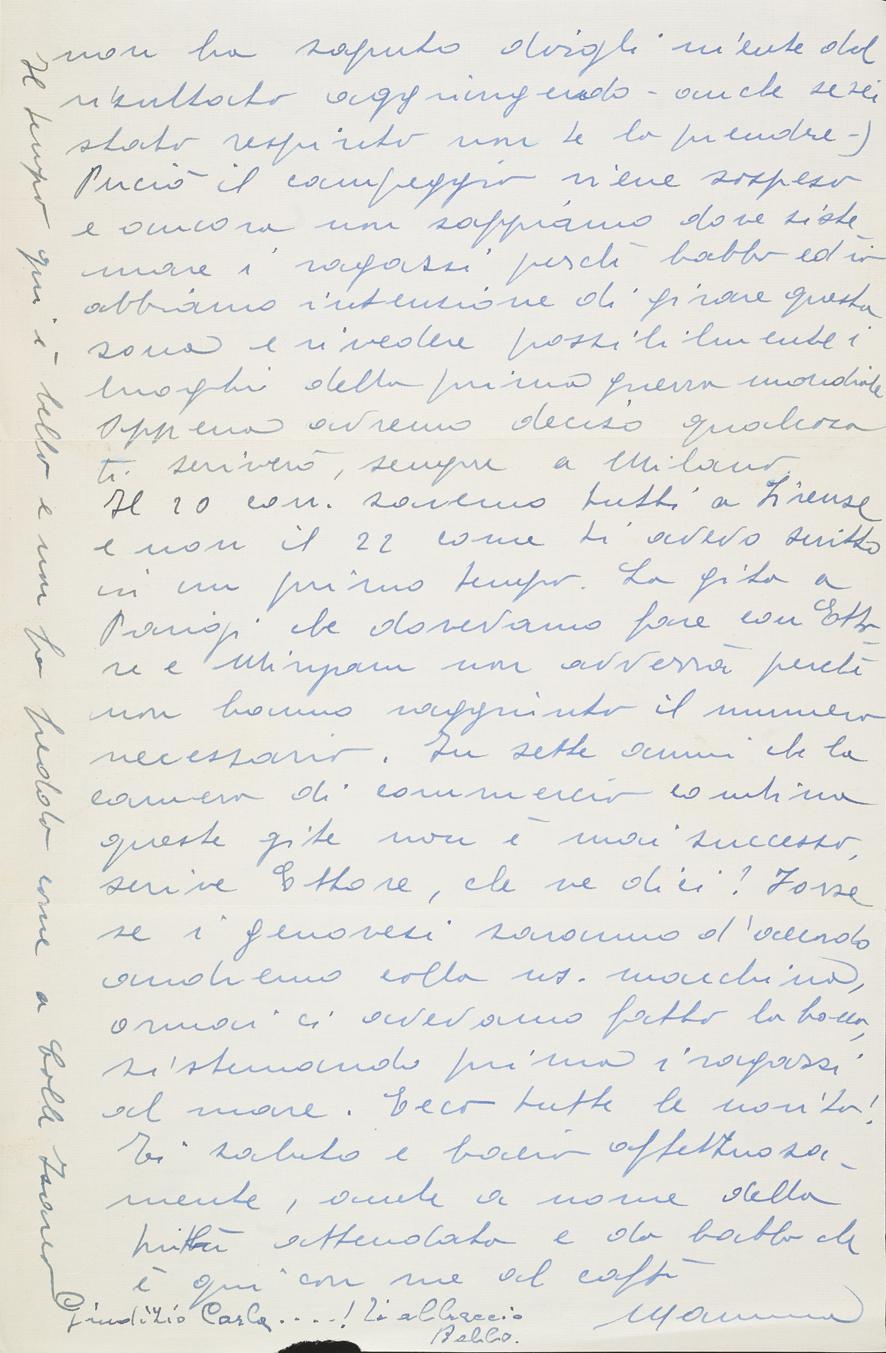 non ha saputo dirgli niente del
risultato aggiungendo - anche se sei
stato respinto non te la prendre -)
Perciò il campeggio viene sospeso
e ancora non sappiamo dove siste
mare i ragazzi perchè babbo ed io
abbiamo intenzione di girare questa
zona e rivedere possibilmente i
luoghi della prima guerra mondiale
Appena avremo deciso qualcosa
ti scriverò, sempre a Milano.
Il 20 corr. saremo tutti a Firenze
e non il 22 come ti avevo scritto
in un primo tempo. La gita a
Parigi che dovevamo fare con Etto-
re e Miryam non avverrà perchè
non hanno raggiunto il numero
necessario. In sette anni che la
camera di commercio combina
queste gite non è mai successo,
scrive Ettore, che ne dici? Forse
se i genovesi saranno d'accordo
andremo colla ns. macchina,
ormai ci avevamo fatto la bocca,
sistemando prima i ragazzi
al mare. Ecco tutte le novità!
Ti saluto e bacio affettuosa-
mente, anche a nome della
attendata e da babbo che
è qui con me al caffè
Mamma
Giudizio Carla....! Ti abbraccio
Babbo.
Il tempo qui è bello e non fa freddo come a Colle Isarco